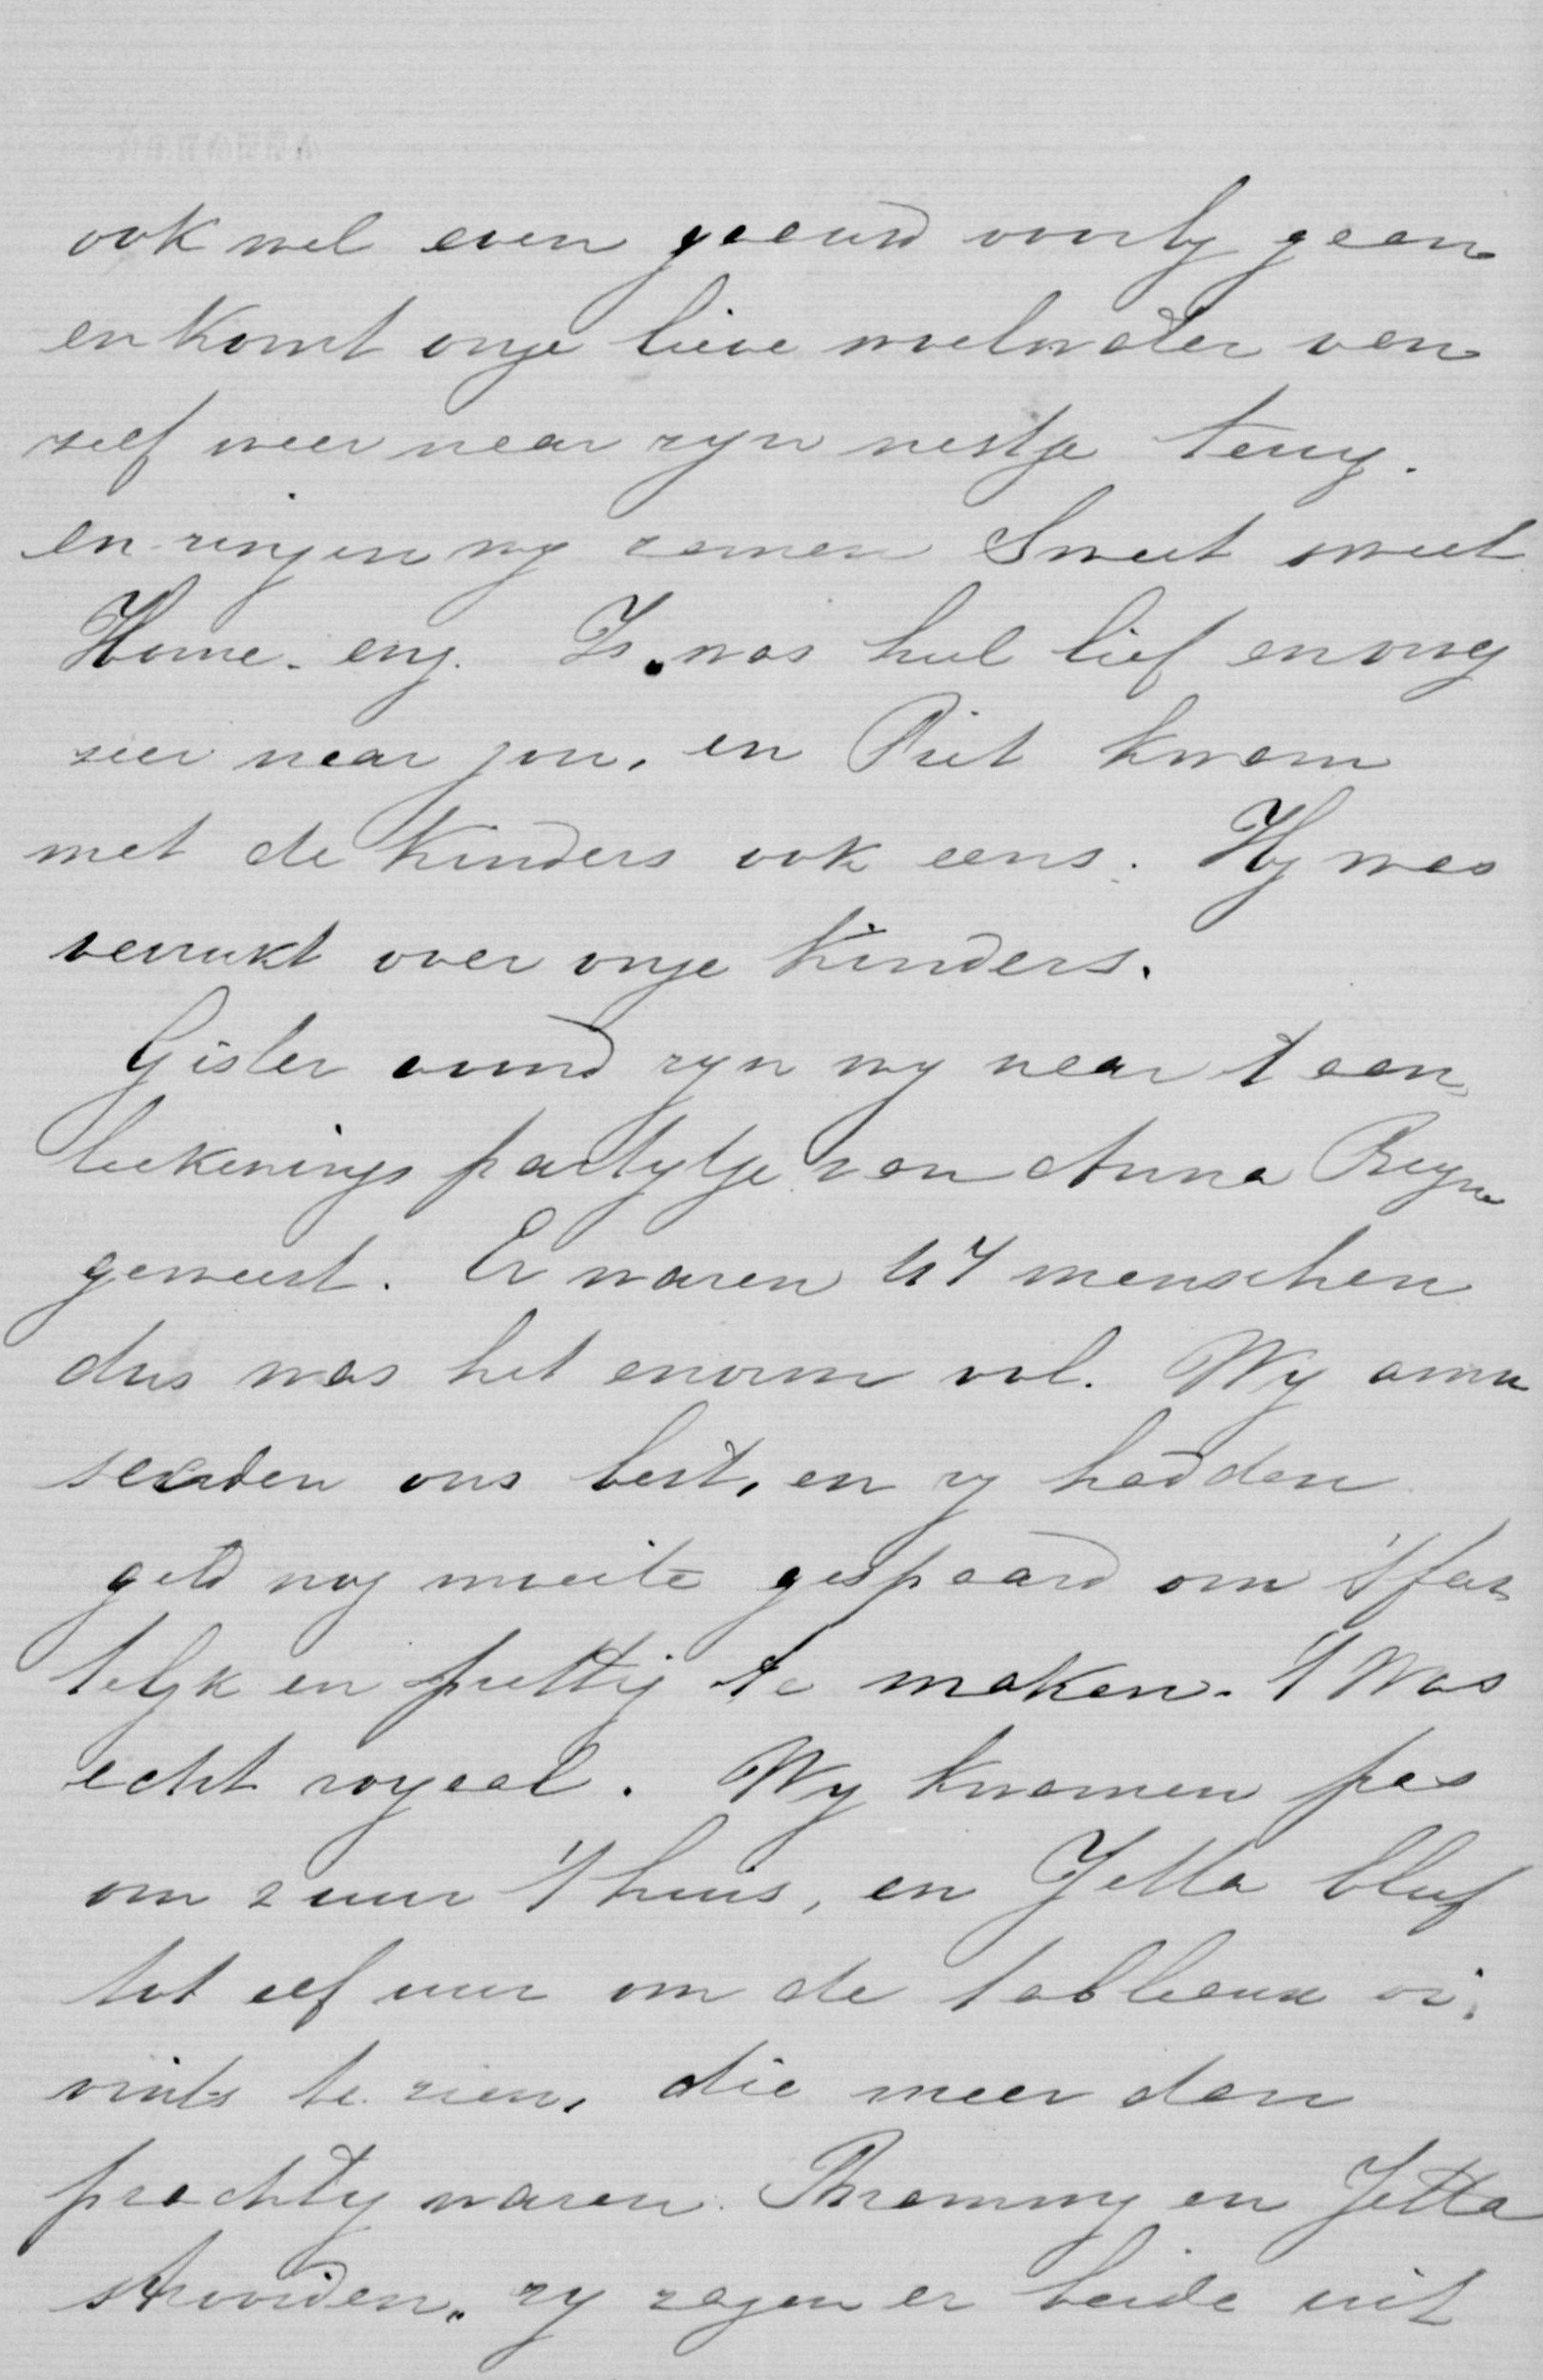 ook wel even gaauw voorby gaan
en komt onze lieve weldoder van
self weer naar zyn nestje terug.
en zingen wy samen Sweet sweet
Home. enz. Is. was heel lief en vroeg
zeer naar jou, en Piet kwam
met de kinders ook eens. Hy was
verrukt over onze kinders.
Gister avond zyn wy naar t aan
teekenings partytje van Anna Reyn
geweest. Er waren 47 menschen
dus was het enorm vol. Wy amu
seerden ons best, en zy hadden
geld nog moeite gespaard om 't fees
telyk en prettig te maken. 't Was
echt royaal. Wy kwamen pas
om 2 uur thuis, en Jetta bleef
tot elf uur om de tableaux vi.
vants te zien, die meer dan
prachtig waren. Brammy en Jetta
strooiden. zy zagen er beide uit